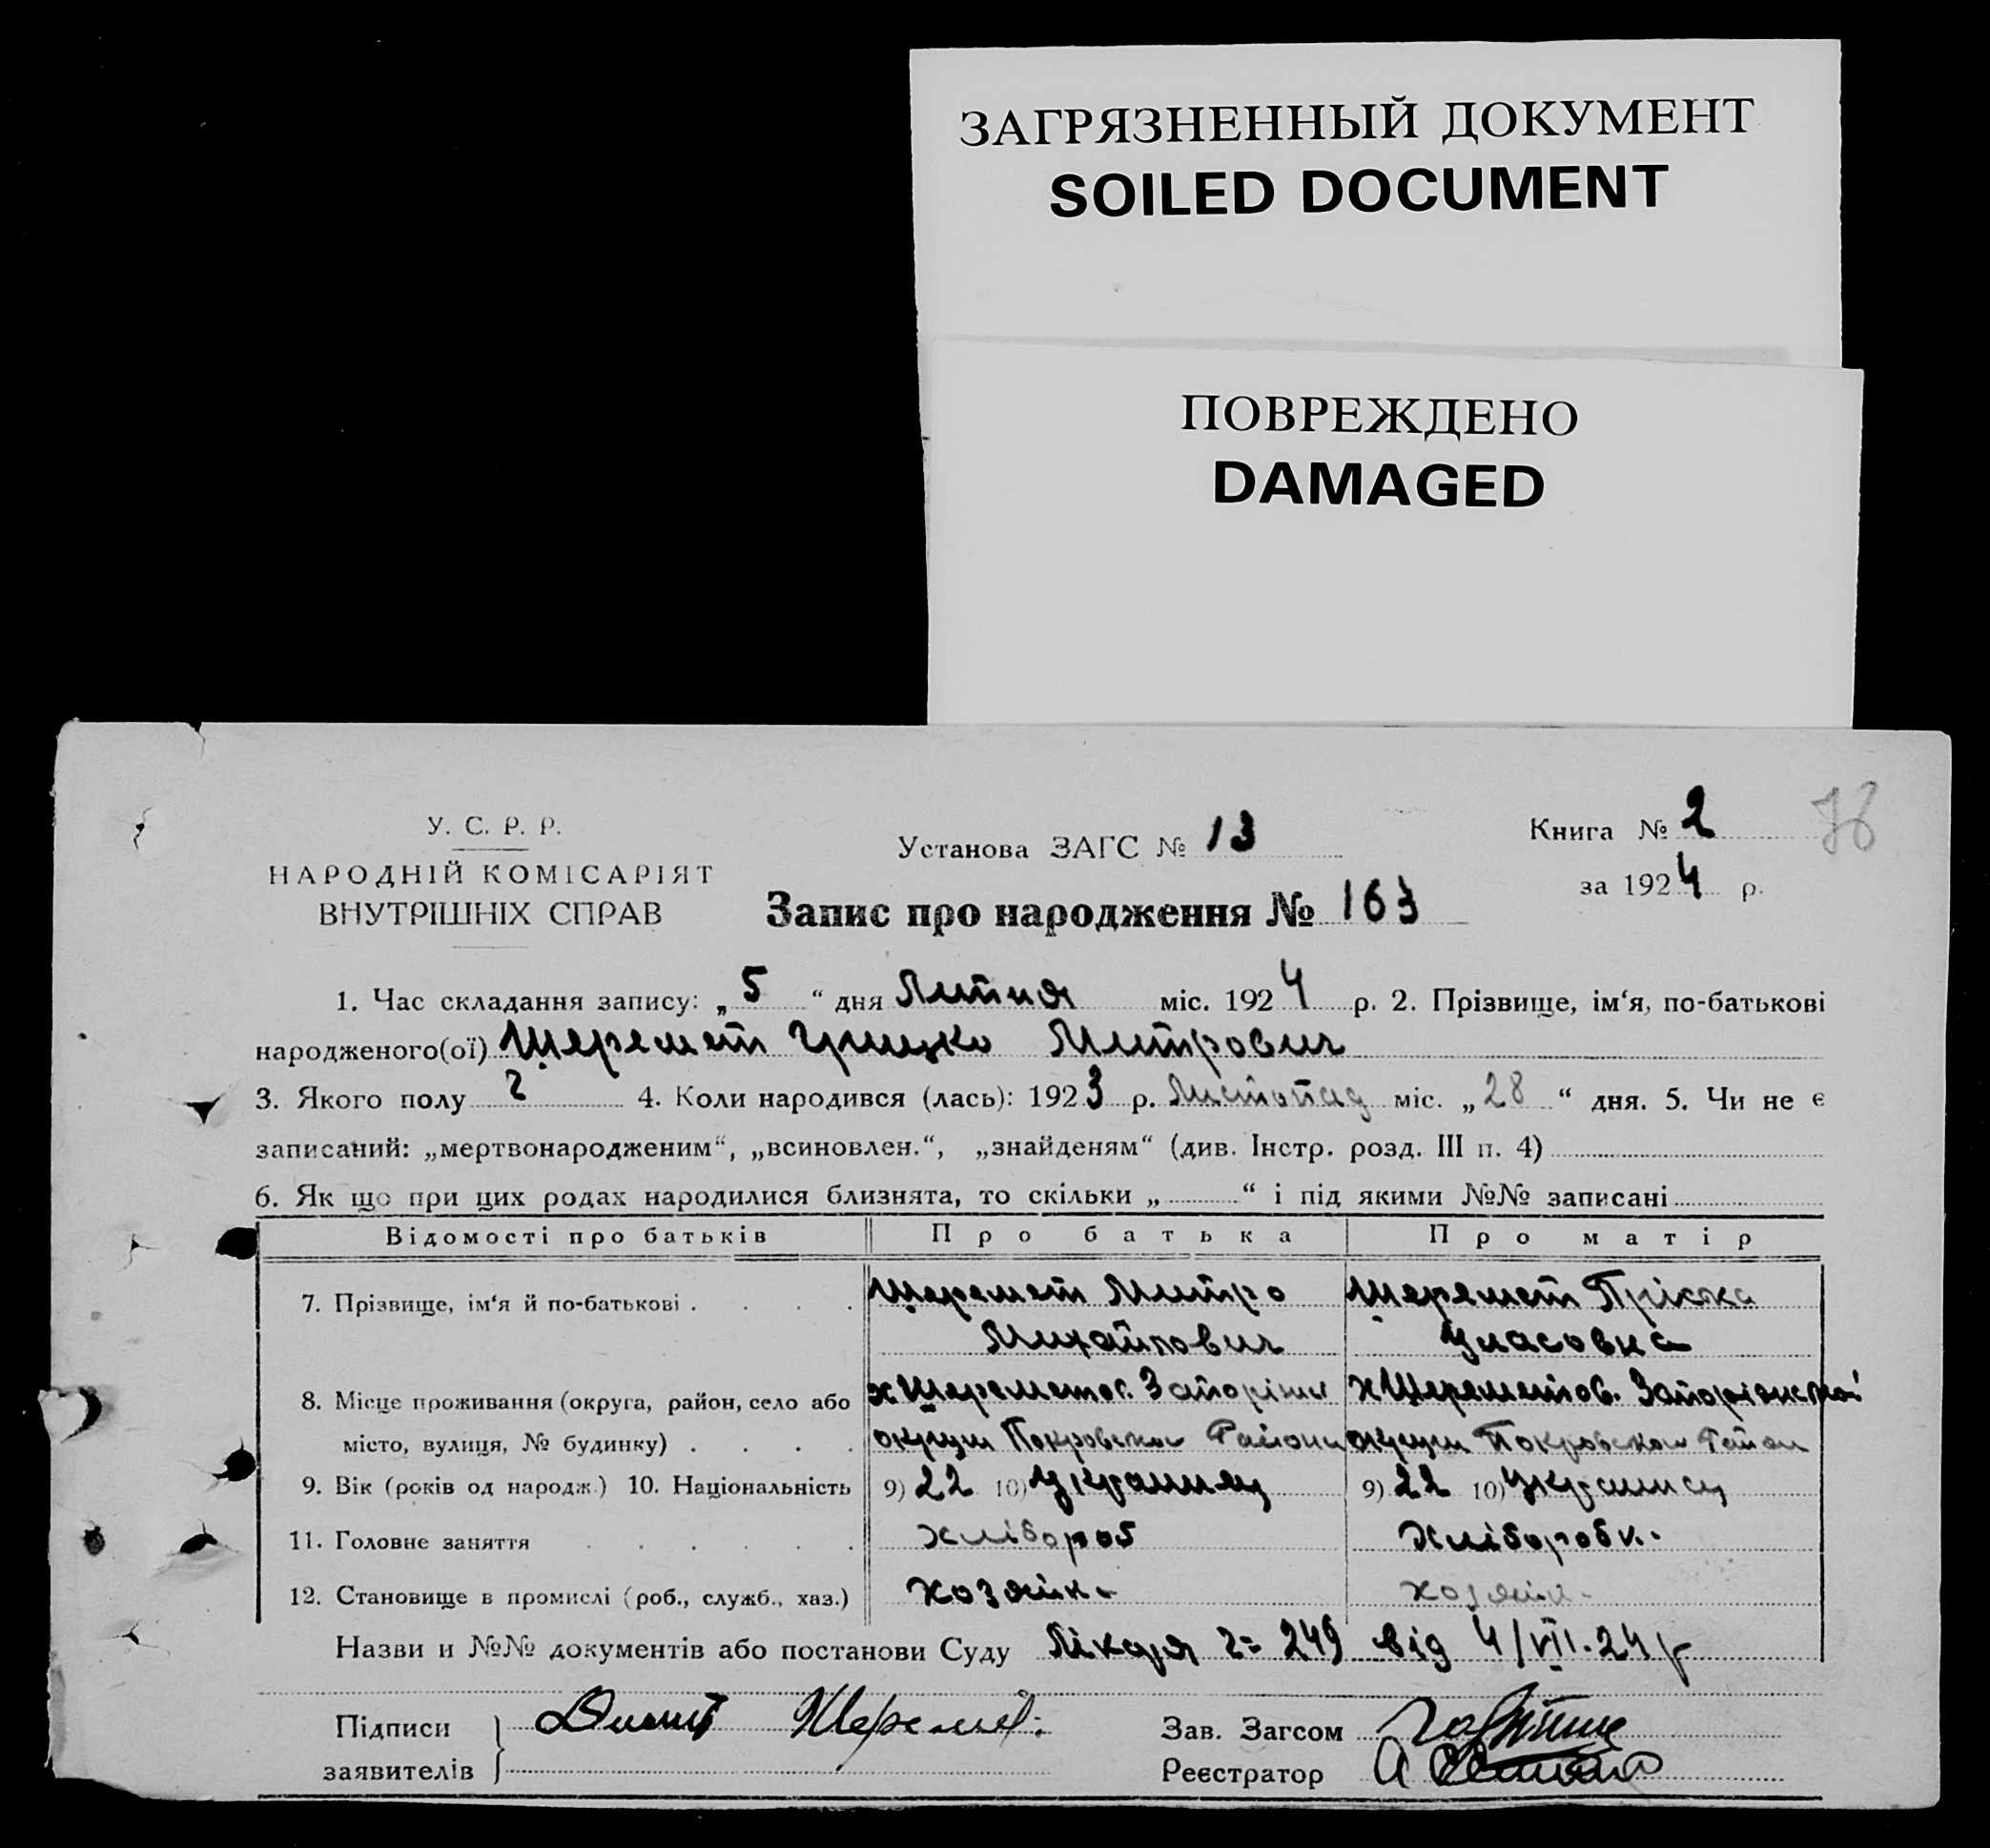 ЗАГРЯЗНЕННЫЙ ДОКУМЕНТ
SOILED DOCUMENT
ПОВРЕЖДЕНО
DAMAGED
У. С. Р. Р.
НАРОДНІЙ КОМІСАРІЯТ
ВНУТРІШНІХ СПРАВ
Установа ЗАГС № 13
Запис про народження № 163
Книга № 2
за 1924 р.
1. Час складання запису: „ 5 “ дня Липня міс. 1924 р. 2. Прізвище, ім‘я, по-батькові
народженого(ої) Шеремет Грицко Митрович
3. Якого полу ч 4. Коли народився (лась): 1923 р. Листопад міс. „ 28 “ дня. 5. Чи не є
записаний: „мертвонародженим“, „всиновлен.“, „знайденям“ (див. Інстр. розд. III п. 4)
6. Як що при цих родах народилися близнята, то скільки „ “ і під якими №№ записані
Відомості про батьків Про батька Про матір
7. Прізвище, ім‘я й по-батькові . . . . Шеремет Митро Шеремет Пріська
Михайлович Уласовна
8. Місце проживання (округа, район, село або х Шереметов. х Шереметов. Запоріжської
місто, вулиця, № будинку) . . . . округи Покровськ Района округи Покровськ Район
9. Вік (років од народж.) 10. Національність 9) 22 10) Украинец 9) 22 10) Украинец
11. Головне заняття . . . . . . Хлібороб Хлібробк.
12. Становище в промислі (роб., служб., хаз.) хозяйн. хозяйн.
Назви и №№ документів або постанови Суду Лікаря 249 від 4/VII-24 р
Підписи Шеремет. Зав. Загсом
заявителів Реєстратор